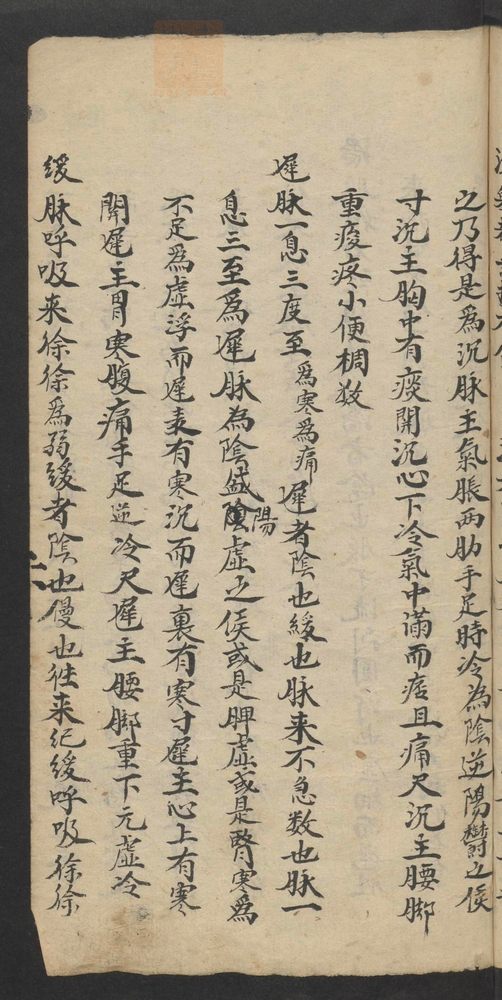 之乃得是為沉脉主氣脹兩肋手足時冷為陰逆陽鬱之候
寸沉主胸中有痰関沉心下冷氣中滿而痞且痛尺沉主腰脚
重痠疼小便稠数
遲脉一息三度至為寒為痛遲者陰也緩也脉来不急数也脉一
息三至為遲脉為陰盛陽虛之候或是脾虛或是腎寒為
不足為虛浮而遲表有寒沉而遲裏有寒寸遲主心上有寒
関遲主胃寒腹痛手足逆冷尺遲主腰脚重下元虛冷
緩脉呼吸来徐徐為弱緩者陰也慢也徃来紀緩呼吸徐徐